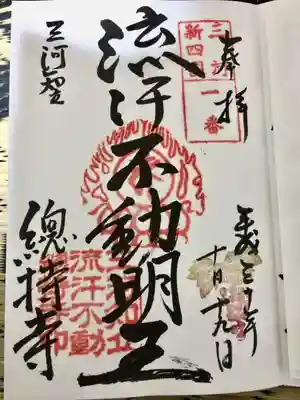 奉拝
三河
新四国
一番
平成三十年
十月
日
流汗不動明王
流汗不動
三河
總持寺